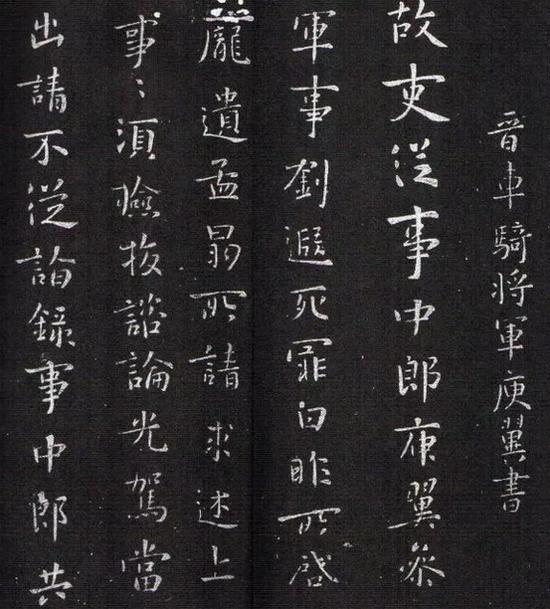 晉車騎將軍庾翼書
故吏從事中郎庾翼參
軍事劉遐死罪白昨所啓
龐遺孟昺所請求述上
事〻須撿挍諮論光駕當
出請不從諭錄事中郎共